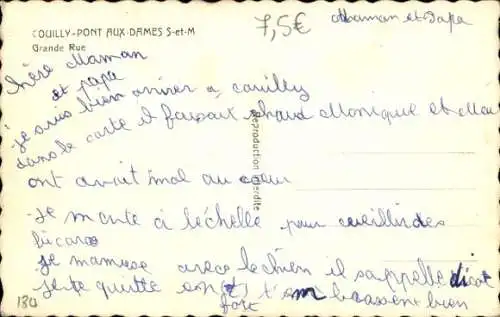 COUILLY-PONT AUX-DAMES S-et-M
Grande Rue
7,5€
Maman et Papa
chère Maman
et papa
je suis bien arriver a couilly
dans le carte il faisait chaud Monique et
ont avait mal au coeur
Je monte à l'échelle pour cueillir des
bicaros
je mamuse avec le chien il sappelle dicot
je te quitte en t'embrassent bien
fort
Reproduction interdite
180